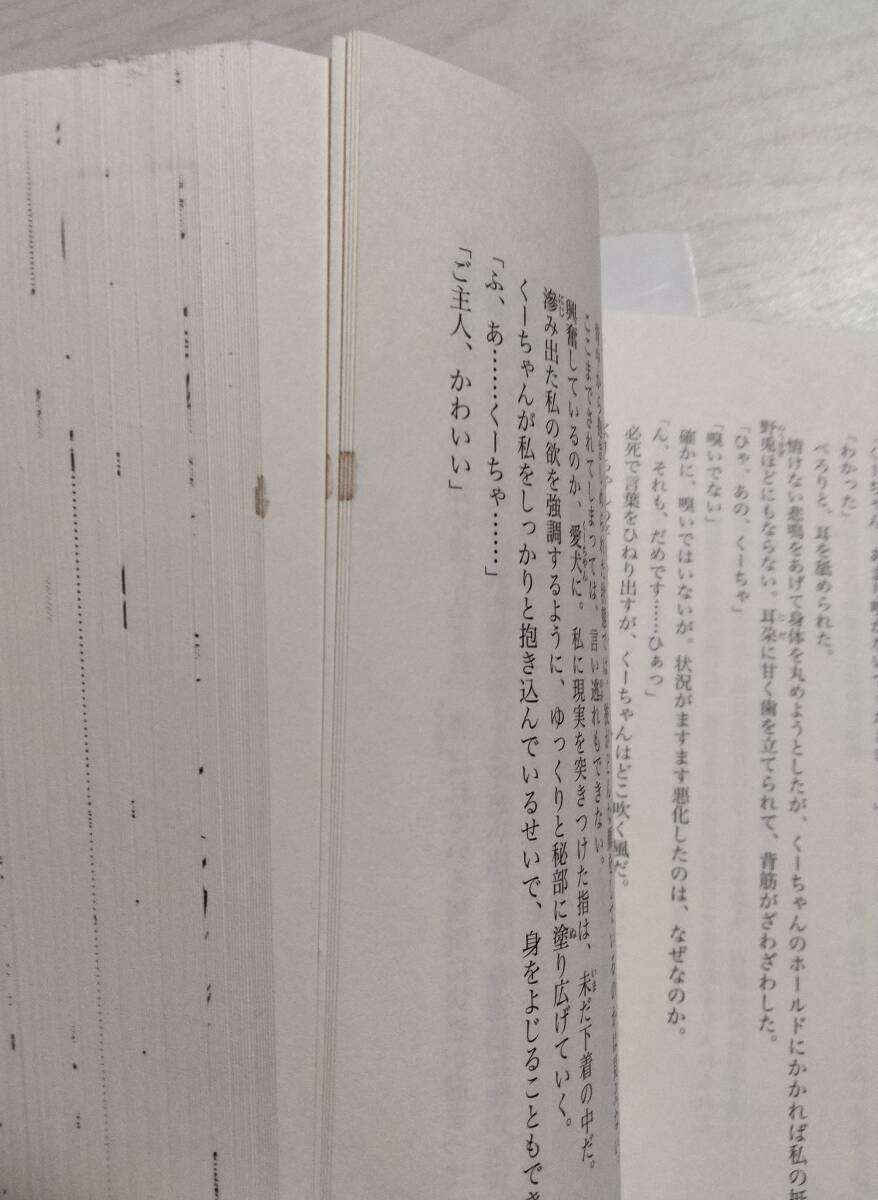 「わかった」
ぺろりと、耳を舐められた。
情けない悲鳴をあげて身体を丸めようとしたが、くーちゃんのホールドにかかれば私の抵
野兎ほどにもならない。耳朶に甘く歯を立てられて、背筋がざわざわした。
「ひゃ、あの、くーちゃ」
「嗅いでない」
確かに、嗅いではいないが。状況がますます悪化したのは、なぜなのか。
「ん、それも、だめです……ひぁっ」
必死で言葉をひねり出すが、くーちゃんはどこ吹く風だ。
ここまでされてしまっては、言い逃れもできない。
興奮しているのか、愛犬に。私に現実を突きつけた指は、未だ下着の中だ。
滲み出た私の欲を強調するように、ゆっくりと秘部に塗り広げていく。
くーちゃんが私をしっかりと抱き込んでいるせいで、身をよじることもでき
「ふ、あ……くーちゃ……」
「ご主人、かわいい」